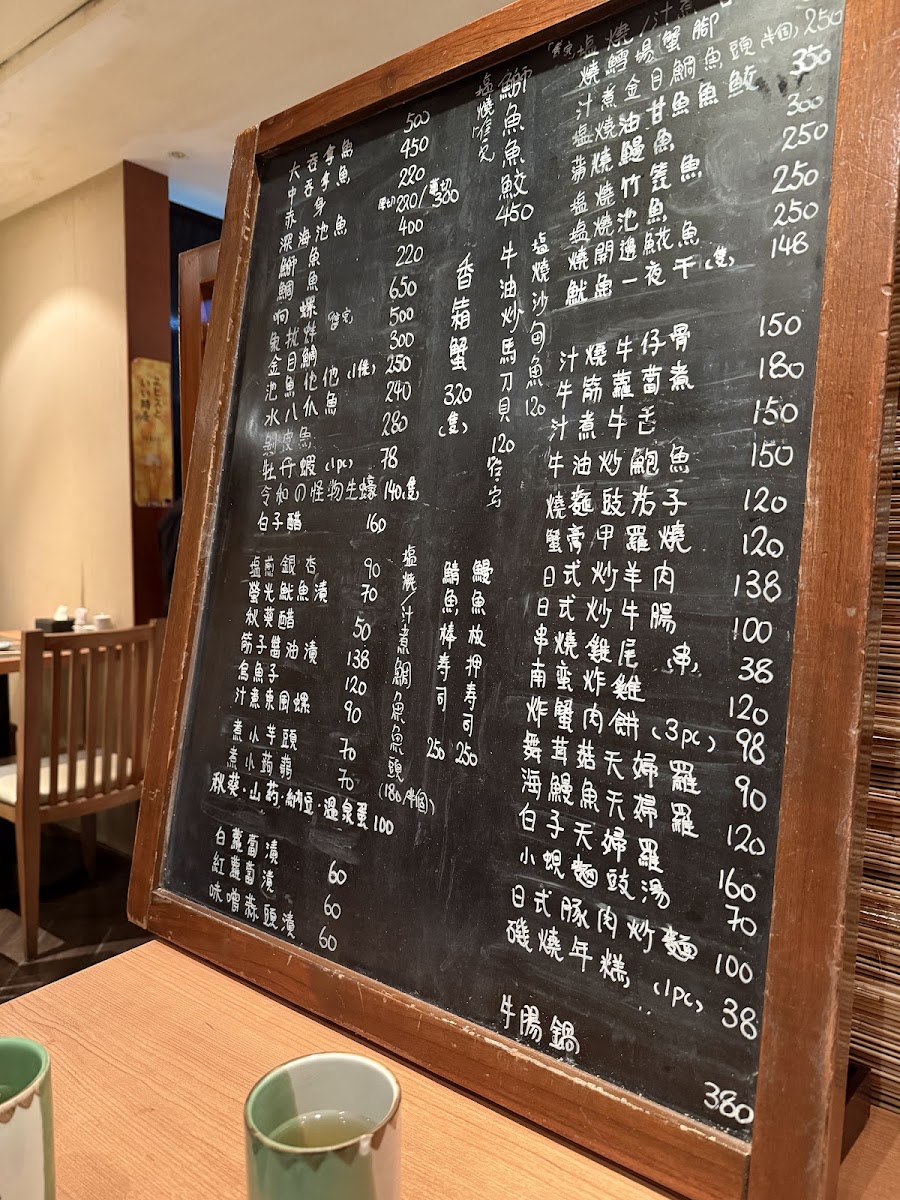 大吞拿魚 500
中吞拿魚 450
赤身 220
深海池魚 厚切220/薄切320
鰤魚 400
鯛魚 220
响螺 650
魚扰 500
金目鯛 300
池魚他他(1隻) 250
水八爪魚 240
剝皮魚 280
牡丹蝦(1pc) 78
令和の怪物生蠔 140/隻
白子醋 160
塩煎銀杏 90
螢光魷魚漬 70
秋葵醋 50
筋子醬油漬 138
烏魚子 120
汁煮東風螺 90
煮小芋頭 70
煮小蒟蒻 70
秋葵·山药·納豆·溫泉蛋 100
白蘿蔔漬 60
紅蘿蔔漬 60
味噌蒜頭漬 60
塩燒
鰤魚魚鮫 450
香箱蟹 320(隻)
牛油炒馬刀貝 120
塩燒沙甸魚 120
塩燒/汁煮鯛魚魚頭 (180/半個)
鯖魚棒寿司 250
鰻魚板押寿司 250
塩燒/汁煮
燒鱈場蟹腳
汁煮金目鯛魚頭(半個) 250
塩燒油甘魚魚鮫 350
蒲燒鰻魚 300
塩燒竹筴魚 250
塩燒池魚 250
燒開邊魷魚 250
魷魚一夜干(隻) 148
汁燒牛仔骨 150
牛筋蘿蔔煮 180
汁煮牛舌 150
牛油炒鮑魚 150
燒麵豉茄子 120
蟹膏甲羅燒 120
日式炒羊肉 138
日式炒牛腸 100
串燒雞尾(串) 38
南蛮炸雞 120
炸蟹肉餅(3pc) 98
舞茸菇天婦羅 90
海鰻魚天婦羅 120
白子天婦羅 160
小蜆麵豉湯 70
日式豚肉炒麵 100
磯燒年糕(1pc) 38
牛腸鍋 380